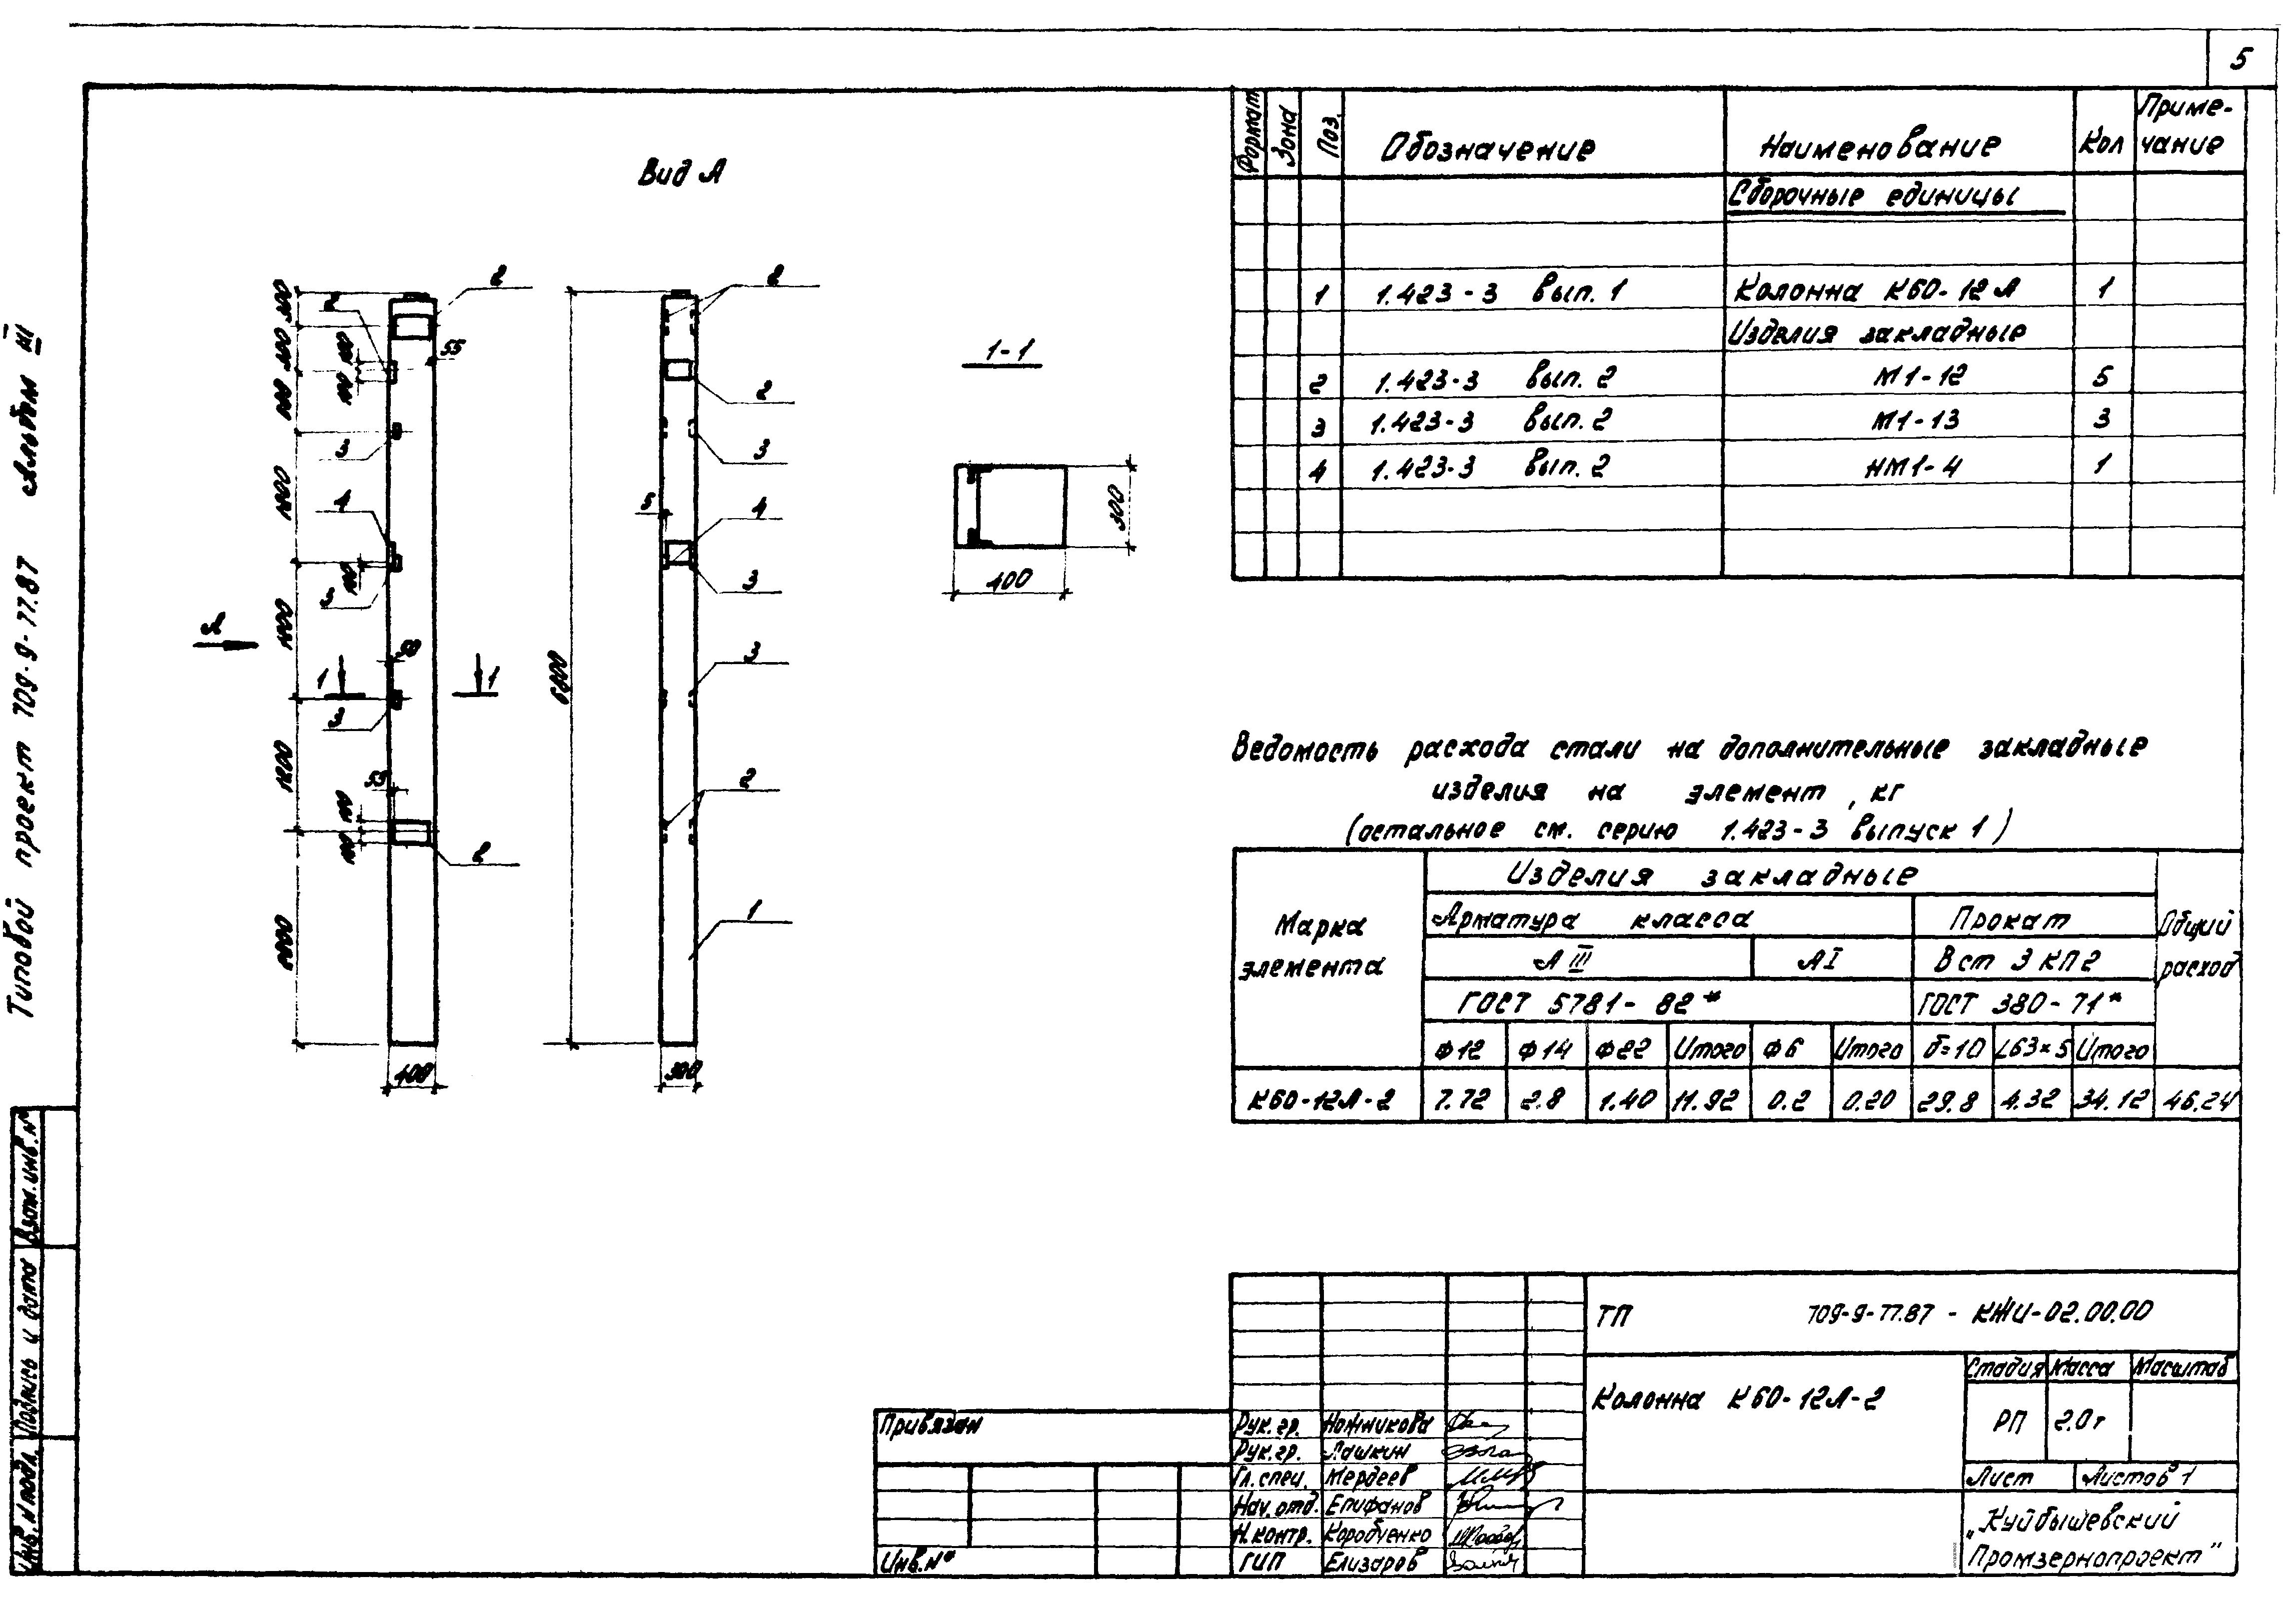 5
Типовой проект 709-9-77.87 альбом III
Вид А
300
300
600
1200
1200
1200
2000
100
100
100
100
100
55
50
55
2
2
3
4
3
3
2
А
1
1
400
6800
2
2
3
5
4
3
3
2
1
300
1-1
300
400
Формат Зона Поз. Обозначение Наименование Кол Приме-чание
Сборочные единицы
1 1.423-3 вып. 1 Колонна К60-12Л 1
Изделия закладные
2 1.423-3 вып. 2 М1-12 5
3 1.423-3 вып. 2 М1-13 3
4 1.423-3 вып. 2 НМ1-4 1
Ведомость расхода стали на дополнительные закладные
изделия на элемент, кг
(остальное см. серию 1.423-3 выпуск 1)
Марка элемента
Изделия закладные
Общий расход
Арматура класса Прокат
А III А I В ст 3 КП2
ГОСТ 5781-82* ГОСТ 380-71*
Ф12 Ф14 Ф22 Итого Ф6 Итого δ=10 L63×5 Итого
К60-12Л-2 7.72 2.8 1.40 11.92 0.2 0.20 29.8 4.32 34.12 46.24
ТП 709-9-77.87 - КЖИ-02.00.00
Колонна К60-12Л-2
Стадия Масса Масштаб
РП 2.0т
Лист Листов 1
„Куйбышевский
Промзернопроект"
Привязан
Инв.№
Рук. гр. Ножникова
Рук. гр. Лашкин
Гл. спец. Мердеев
Нач. отд. Епифанов
Н. контр. Коробченко
ГИП Елизаров
Взам. инв. №
Подпись и дата
Инв. № подл.